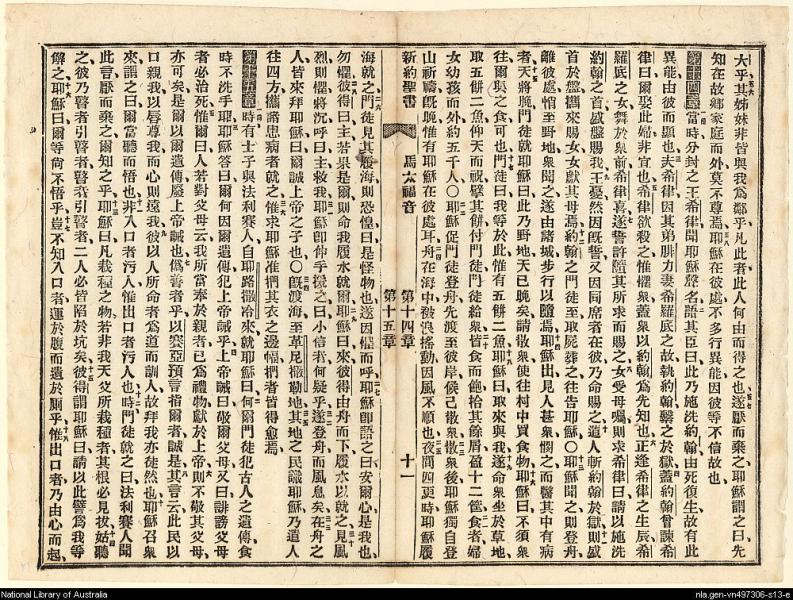 大乎其姊妹非皆與我爲鄰乎凡此者此人何由而得之也遂厭而棄之耶穌謂之曰先
知在故鄉家庭而外莫不尊焉耶穌在彼處不多行異能因彼等不信故也
第十四章當時分封之王希律聞耶穌聲名語其臣曰此乃施洗約翰由死復生故有此
異能由彼而顯也夫希律因其弟腓力妻希羅底之故執約翰繫之於獄蓋約翰曾諫希
律曰爾娶此婦非宜也希律欲殺之惟懼衆蓋衆以約翰爲先知也正逢希律之生辰希
羅底之女舞於衆前希律喜遂誓許隨其所求而賜之女受母囑則求希律曰請以施洗
約翰之首盛盤賜我王憂然因旣誓又因同席者在彼乃命賜之遣人斬約翰於獄則盛
首於盤攜來賜女女獻其母焉約翰之門徒至取屍葬之往告耶穌〇耶穌聞之則登舟
離彼處潛至野地衆聞之遂由諸城步行以隨焉耶穌出見人甚衆憫之而醫其中有病
者天將晚門徒就耶穌曰此乃野地天已晚矣請散衆使往村中買食物耶穌曰不須衆
往爾與之食可也門徒曰我等於此惟有五餅二魚耶穌曰取來與我遂命衆坐於草地
取五餅二魚仰天而祝擘其餅付門徒門徒給衆皆食而飽拾其餘屑盈十二筐食者婦
女幼孩而外約五千人〇耶穌促門徒登舟先渡至彼岸候己散衆散衆後耶穌獨自登
山祈禱旣晚惟有耶穌在彼處耳舟在海中被浪搖動因風不順也夜間四更時耶穌履
新約聖書 馬太福音 第十四章 第十五章 十一
海就之門徒見其履海則恐惶曰是怪物也遂因懼而呼耶穌卽語之曰安爾心是我也
勿懼彼得曰主若果是爾則命我履水就爾耶穌曰來彼得由舟而下履水以就之見風
烈則懼將沉呼曰主救我耶穌卽伸手援之曰小信者何疑乎遂登舟而風息矣在舟之
人皆來拜耶穌曰爾誠上帝之子也〇旣渡海至革尼撒勒地其地之民識耶穌乃遣人
往四方攜諸患病者就之惟求耶穌准捫其衣之邊幅捫者皆得愈焉
第十五章時有士子與法利賽人自耶路撒冷來就耶穌曰何爾門徒犯古人之遺傳食
時不洗手耶耶穌答曰爾何因爾遺傳犯上帝誡乎上帝誡曰敬爾父母又曰誹謗父母
者必治死惟爾曰人若對父母云我所當奉於親者已爲禮物獻於上帝則不敬其父母
亦可矣是爾以爾遺傳廢上帝誡也僞善者乎以賽亞預言指爾者誠是其言云此民以
口親我以唇尊我而心則遠我彼以人所命者爲道而訓人故拜我亦徒然也耶穌召衆
來謂之曰爾當聽而悟也非入口者污人惟出口者污人也時門徒就之曰法利賽人聞
此言厭而棄之爾知之乎耶穌曰凡栽種之物若非我天父所栽種者其根必見拔姑聽
之彼乃瞽者引瞽者瞽者引瞽者二人必皆陷於坑矣彼得謂耶穌曰請以此譬爲我等
解之耶穌曰爾等尚不悟乎豈不知入口者運於腹而遺於厠乎惟出口者乃由心而起
National Library of Australia
nla.gen-vn497306-s13-e